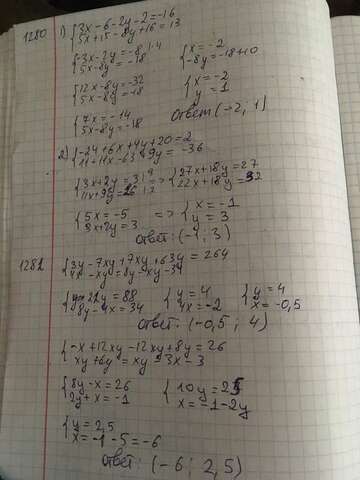 1280 1) {3x - 6 - 2y - 2 = -16
5x + 15 - 8y + 16 = 13
{3x - 2y = -8 |·4
5x - 8y = -18
{x = -2
-8y = -18 + 10
{12x - 8y = -32
5x - 8y = -18
{x = -2
y = 1
{7x = -14
5x - 8y = -18
Ответ (-2, 1)
2) {-24 + 6x + 4y + 20 = 2
11 + 11x - 63 + 9y = -36
{3x + 2y = 3 | 9
11x + 9y = 16 | 2
=> {27x + 18y = 27
22x + 18y = 32
{5x = -5
3x + 2y = 3
=> {x = -1
y = 3
Ответ: (-1, 3)
1281 {3y - 7xy + 7xy + 63y = 264
4x - xy = 8y - xy - 34
{22y = 88
8y - 4x = 34
{y = 4
4x = -2
{y = 4
x = -0,5
Ответ: (-0,5 ; 4)
{-x + 12xy - 12xy + 8y = 26
xy + 6y = xy - 3x - 3
{8y - x = 26
2y + x = -1
{10y = 25
x = -1 - 2y
{y = 2,5
x = -1 - 5 = -6
Ответ: (-6 ; 2,5)